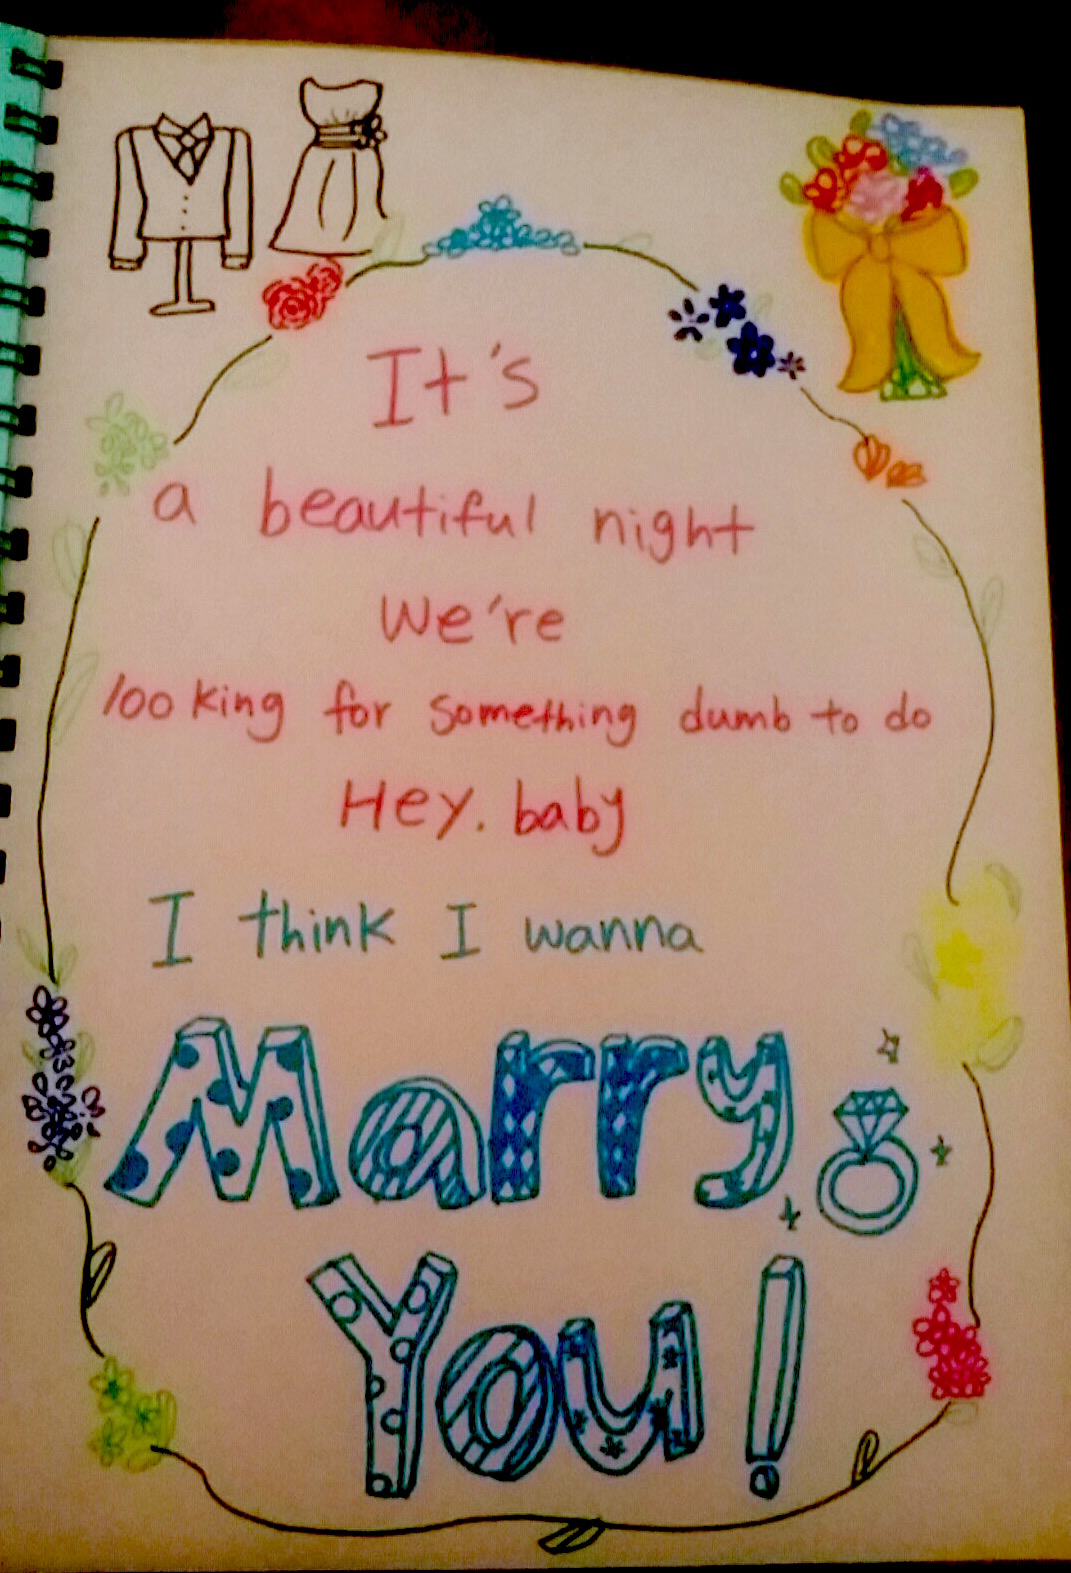 It's
a beautiful night
We're
looking for something dumb to do
Hey. baby
I think I wanna
Marry
You!